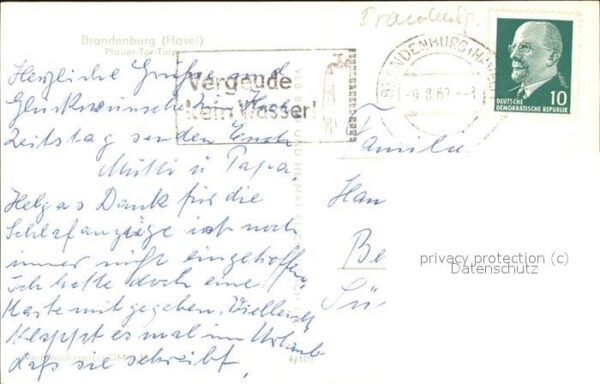 Brandenburg
Brandenburg (Havel)
Plauer-Tor-Turm
Vergeude
kein Wasser!
BRANDENBURG (HAVEL)
-9.8.62.-
DEUTSCHE
DEMOKRATISCHE REPUBLIK
10
Herzliche Grüße und
Glückwünsche zum Hoch
zeitstag senden Euch
Mutti u Papa.
Helgas Dank für die
Schlafanzüge ist noch
immer nicht eingetroffen
Ich hatte doch eine
Karte mitgegeben. Vielleicht
klappt es mal im Urlaub
daß sie schreibt.
Familie
Han
Be
Sü
privacy protection (c)
Datenschutz
Verbraucherpreis DM